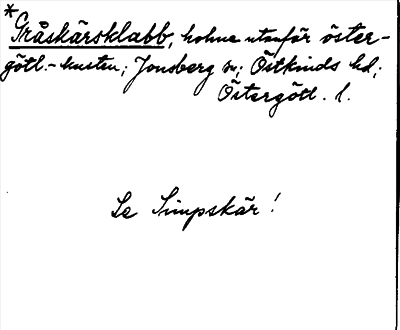 * Gråskärsklabb, holme utanför öster-
götl.-kusten; Jonsberg sn; Östkinds hd;
Östergötl. l.
Se Simpskär!